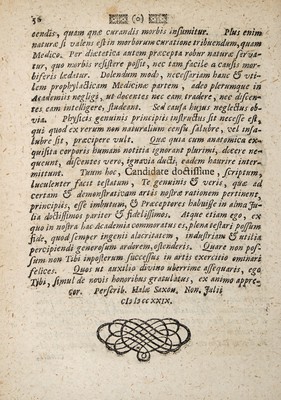 56
cendis, quam quæ curandis morbis insumitur. Plus enim
naturæ si valens est in morborum curatione tribuendum, quam
Medico. Per diæteticæ autem præcepta robur naturæ serva-
tur, quo morbis resistere possit, nec tam facile a causis mor-
biferis lædatur. Dolendum modo, necessariam hanc & uti-
lem prophylacticam Medicinæ partem, adeo plerumque in
Academiis negligi, ut docentes nec eam tradere, nec discen-
tes eam intelligere, studeant. Sed causa hujus neglectus ob-
via. Physicis genuinis principiis instructus sit necesse est,
qui quod ex rerum non naturalium censu salubre, vel insa-
lubre sit, præcipere vult. Quæ quia cum anatomica ex-
quisita corporis humani notitia ignorant plurimi, docere ne-
queunt, discentes vero, ignavia ducti, eadem haurire inter-
mittunt. Tuum hoc, Candidate doctissime, scriptum,
luculenter facit testatum, Te genuinis & veris, quæ ad
certam & demonstrativam artis nostræ rationem pertinent,
principiis, esse imbutum, & Præceptores habuisse in alma Ju-
lia doctissimos pariter & fidelissimos. Atque etiam ego, ex
quo in nostra hac Academia commoratus es, plena testari possum
fide, quod semper ingenii alacritatem, industriam & utilia
percipiendi generosum ardorem, ostenderis. Quare non pos-
sum non Tibi inposterum successus in artis exercitio ominari
felices. Quos ut auxilio divino uberrime assequaris, ego
Tibi, simul de novis honoribus gratulatus, ex animo appre-
cor. Perscrib. Halæ Saxon. Non. Julii
CIƆ IƆ CC XXIX.